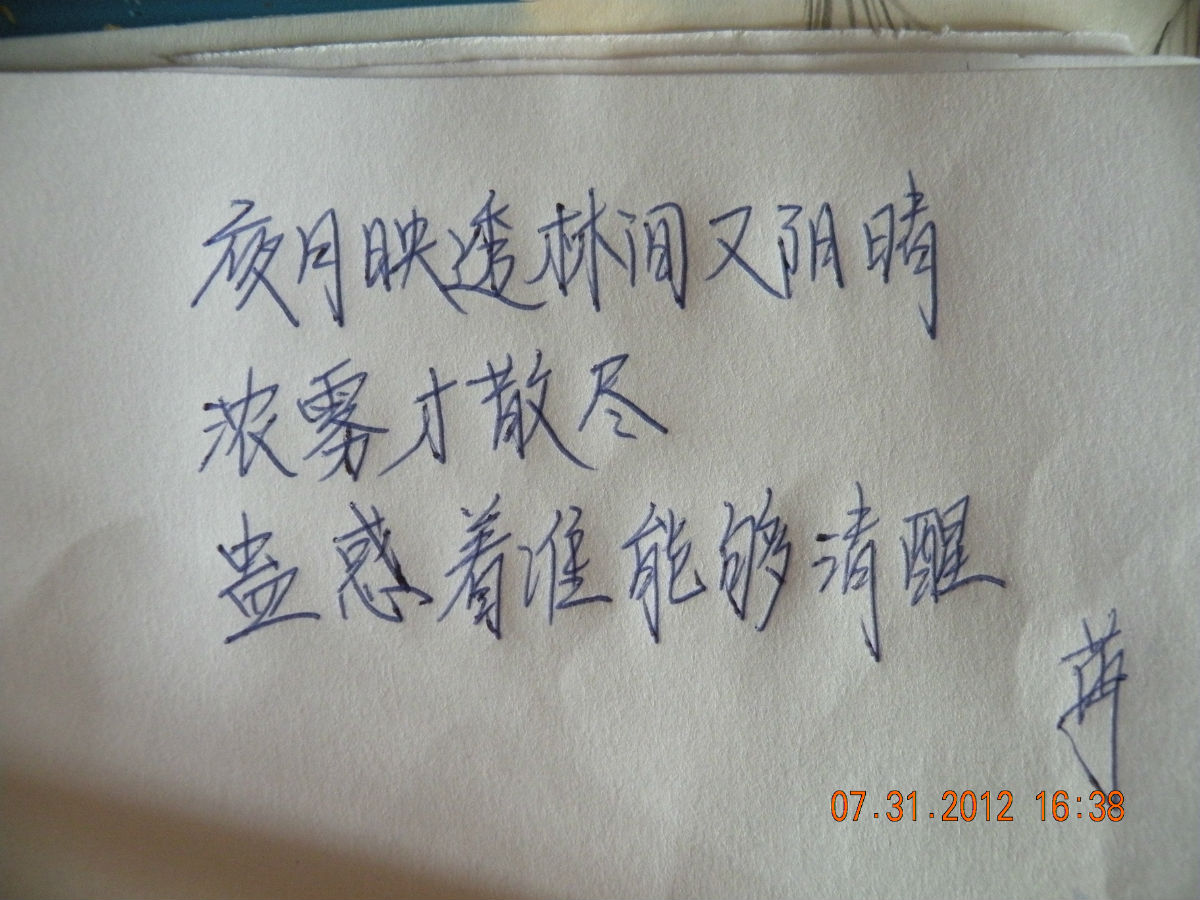 夜月映透林间又阴晴
浓雾才散尽
蛊惑着谁能够清醒
07.31.2012 16:38